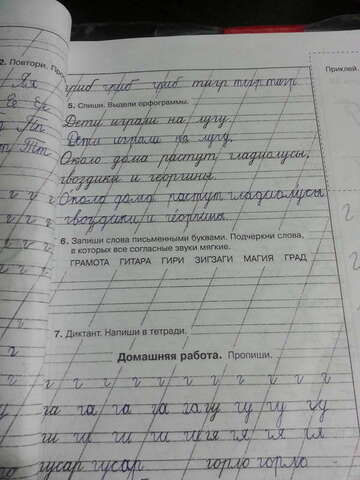 2. Повтори. Про
гриб гриб гриб тигр тигр тигр
Приклей.
5. Спиши. Выдели орфограммы.
Дети играли на лугу.
Дети играли на лугу.
Около дома растут гладиолусы,
гвоздики и георгины.
Около дома растут гладиолусы
гвоздики и георгины.
6. Запиши слова письменными буквами. Подчеркни слова,
в которых все согласные звуки мягкие.
ГРАМОТА ГИТАРА ГИРИ ЗИГЗАГИ МАГИЯ ГРАД
7. Диктант. Напиши в тетради.
Домашняя работа. Пропиши.
г г г г г г г г г г г
га га га га га гу гу гу гу
ги ги ги ги ги гя гя гя гя
гусар гусар горло горло